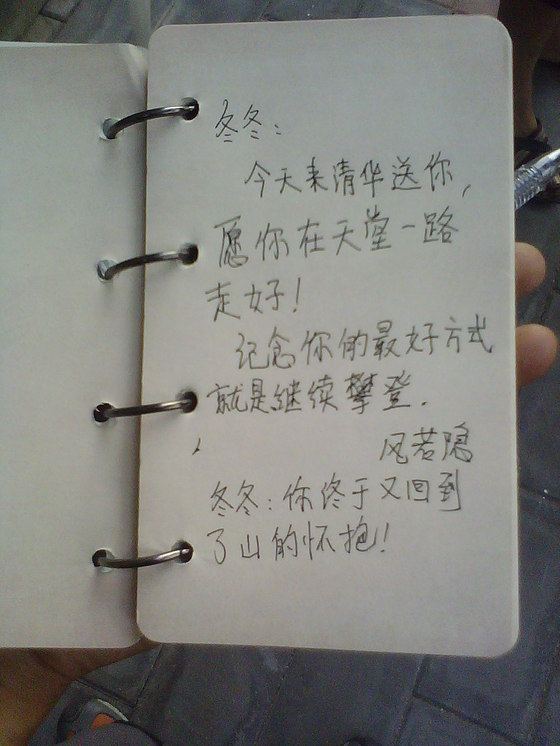 冬冬：
今天来清华送你，
愿你在天堂一路
走好！
纪念你的最好方式
就是继续攀登.
风若隐
冬冬：你终于又回到
了山的怀抱！